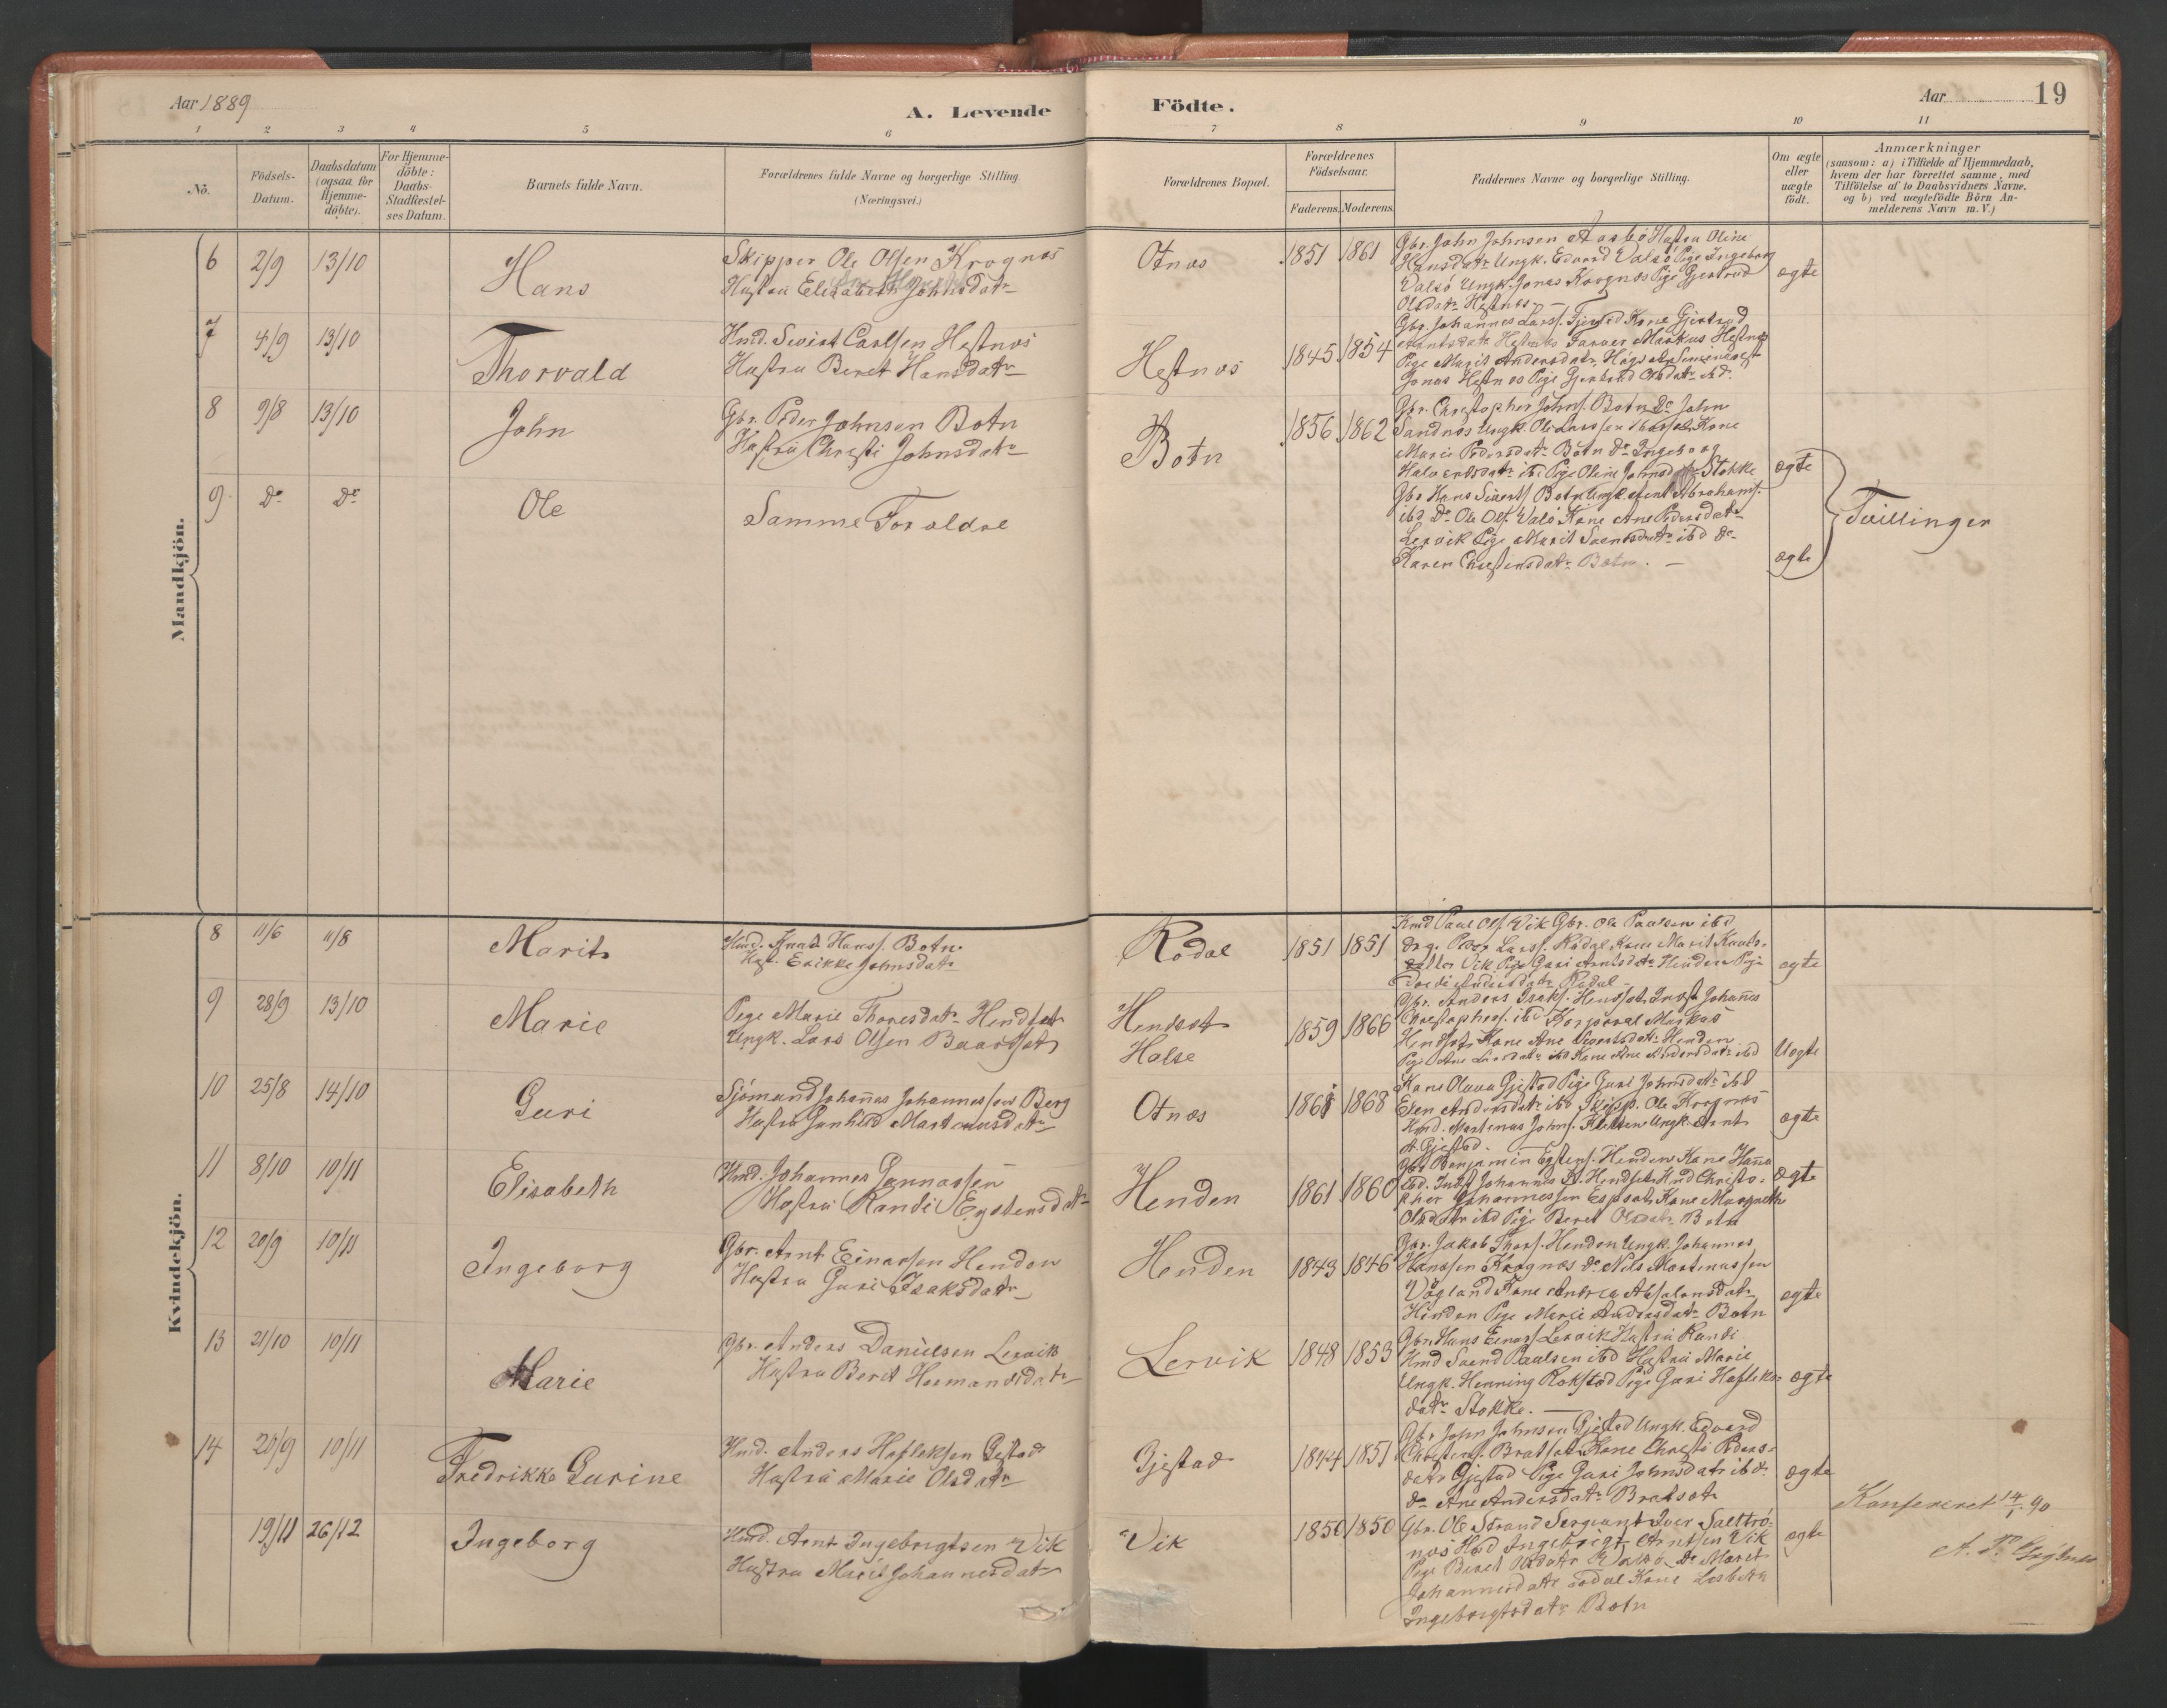 Aar 1889
A. Levende Födte.
Aar 19
1 2 3 4 5 6 7 8 9 10 11
No.
Födsels-Datum.
Daabsdatum (ogsaa for Hjemme-döbte).
For Hjemme-döbte: Daabs-Stadfæstel-ses Datum.
Barnets fulde Navn.
Forældrenes fulde Navne og borgerlige Stilling.
(Næringsvei.)
Forældrenes Bopæl.
Forældrenes Födselsaar.
Faderens. Moderens.
Faddernes Navne og borgerlige Stilling.
Om ægte eller uægte födt.
Anmærkninger
(saasom: a) i Tilfælde af Hjemmedaab,
hvem der har forrettet samme, med
Tilföielse af to Daabsvidners Navne.
og b) ved uægtefödte Börn An-
melderens Navn m. V.)
Mandkjön.
6 2/9 13/10 Hans
Skipper Ole Olsen Krognæs
Hustru Elisabeth Johnsdatr
Otnæs 1851 1861
Gbr. John Johnsen Aasbö Hustru Oline
Hansdatr Ungk. Edvard Valsö Pige Ingeborg
Valsö Ungk. Jonas Korgnæs Pige Gjertrud
Olsdatr Hestnes.
ægte
7 4/9 13/10 Thorvald
Hmd. Sivert Carlsen Hestnæs
Hustru Beret Hansdatr
Hestnæs 1845 1854
Gbr. Johannes Larss. Kone Gjertrud
Hestnes Farver Markus Hestnæs
Pige Marit Andersdatr
Jonas Hestnæs Pige Gjertrud Olsdatr ibd.
8 9/8 13/10 John
Gbr. Peder Johnsen Botn
Hustru Christi Johnsdatr
Botn 1856 1862
Gbr. Christopher Johns. Botn Do John
Sandnæs Ungk. Ole Larssen Kone
Marie Pedersdatr Botn Do Ingeborg
Halvorsdatr ibd Pige Oline Johnsdatr Stokke
ægte
9 Do Do Ole
Samme Forældre
Gbr Hans Siverts. Botn Ungk. Arnt Abrahams.
ibd Do Ole Ols. Valsö Kone Ane Pedersdatr
Lervik Pige Marit Svendsdatr ibd Do
Karen Christensdatr Botn.
ægte
Tvillinger
Kvindekjön.
8 11/6 11/8 Marit
Hmd. Knut Hanss. Botn.
Hust. Erikke Johnsdatr
Rodal 1851 1851
Hmd Paul Ols. Vik Gbr. Ole Paulsen ibd
Drg. Peder Larss. Rodal Kone Marit Knuts-
datter Vik Pige Guri Arntsdatr Henden Pige
Dordi Andersdatr Rodal
ægte
9 28/9 13/10 Marie
Pige Marie Thoresdatr Hendset
Ungk. Lars Olsen Baardset
Hendset
Halse
1859 1866
Gbr. Anders Isaks. Hendset Indst Johannes
Christophers. ibd Korporal Markus
Hendset Kone Ane Sivertsdatr Henden
Pige Ane Larsdatr ibd Kone Ane Andersdatr ibd
Uægte
10 25/8 14/10 Guri
Sjömand Johannes Johannessen Berg
Hustru Gunhild Martinusdatr
Otnæs 1868
Kone Olava Gjestad Pige Guri Johnsdatr ibd
Elen Andersdatr ibd Skipp. Ole Krognæs
Hmd. Martinus Johns. Ungk. Arnt
A. Gjestad.
ægte
11 8/10 10/11 Elisabeth
Hmd. Johannes Gunnarssen
Hustru Randi Eystensdatr
Henden 1861 1860
Gbr. Benjamin Eystens. Henden Kone Hanna
ibd. Indst Johannes K. Hendset Hmd Christo-
pher Johannessen Espset Kone Margreth
Olsdatr ibd Pige Beret Olsdatr Botn
ægte
12 20/9 10/11 Ingeborg
Gbr. Arnt Einarsen Henden
Hustru Guri Isaksdatr
Henden 1843 1846
Gbr. Jakob Thors. Henden Ungk. Johannes
Hanssen Krognæs Do Nils Martinussen
Vaagland Kone Andrea Absalonsdatr
Henden Pige Marie Andersdatr Botn
ægte
13 21/10 10/11 Marie
Gbr. Anders Danielsen Lervik
Hustru Beret Hermansdatr
Lervik 1848 1853
Gbr. Hans Einars. Lervik Hustru Randi
Hmd Svend Paulsen ibd Hustru Marie
Ungk. Henning Rokstad Pige Guri Hafteks-
datr Stokke.
ægte
14 26/9 10/11 Fredrikke Gurine
Hmd. Anders Hafteksen Gjestad
Hustru Marie Olsdatr
Gjestad 1844 1851
Gbr John Johnsen Gjestad Ungk. Edvard
Christens. Bratset Kone Christi Peders-
datr Gjestad Pige Guri Johnsdatr ibd
Do Ane Andersdatr Bratset
ægte
19/11 26/12 Ingeborg
Hmd. Arnt Ingebrigtsen Vik
Hustru Marit Johannesdatr
Vik 1850 1850
Gbr. Ole Strand Sergeant Iver Saltrö-
næs Hmd Ingebrigt Arntsen Vik
Pige Beret Olsdatr Valsö Do Marit
Johannesdatr Rodal Kone Lisbeth
Ingebrigtsdatr Botn
ægte
Konfereret 14/1 90